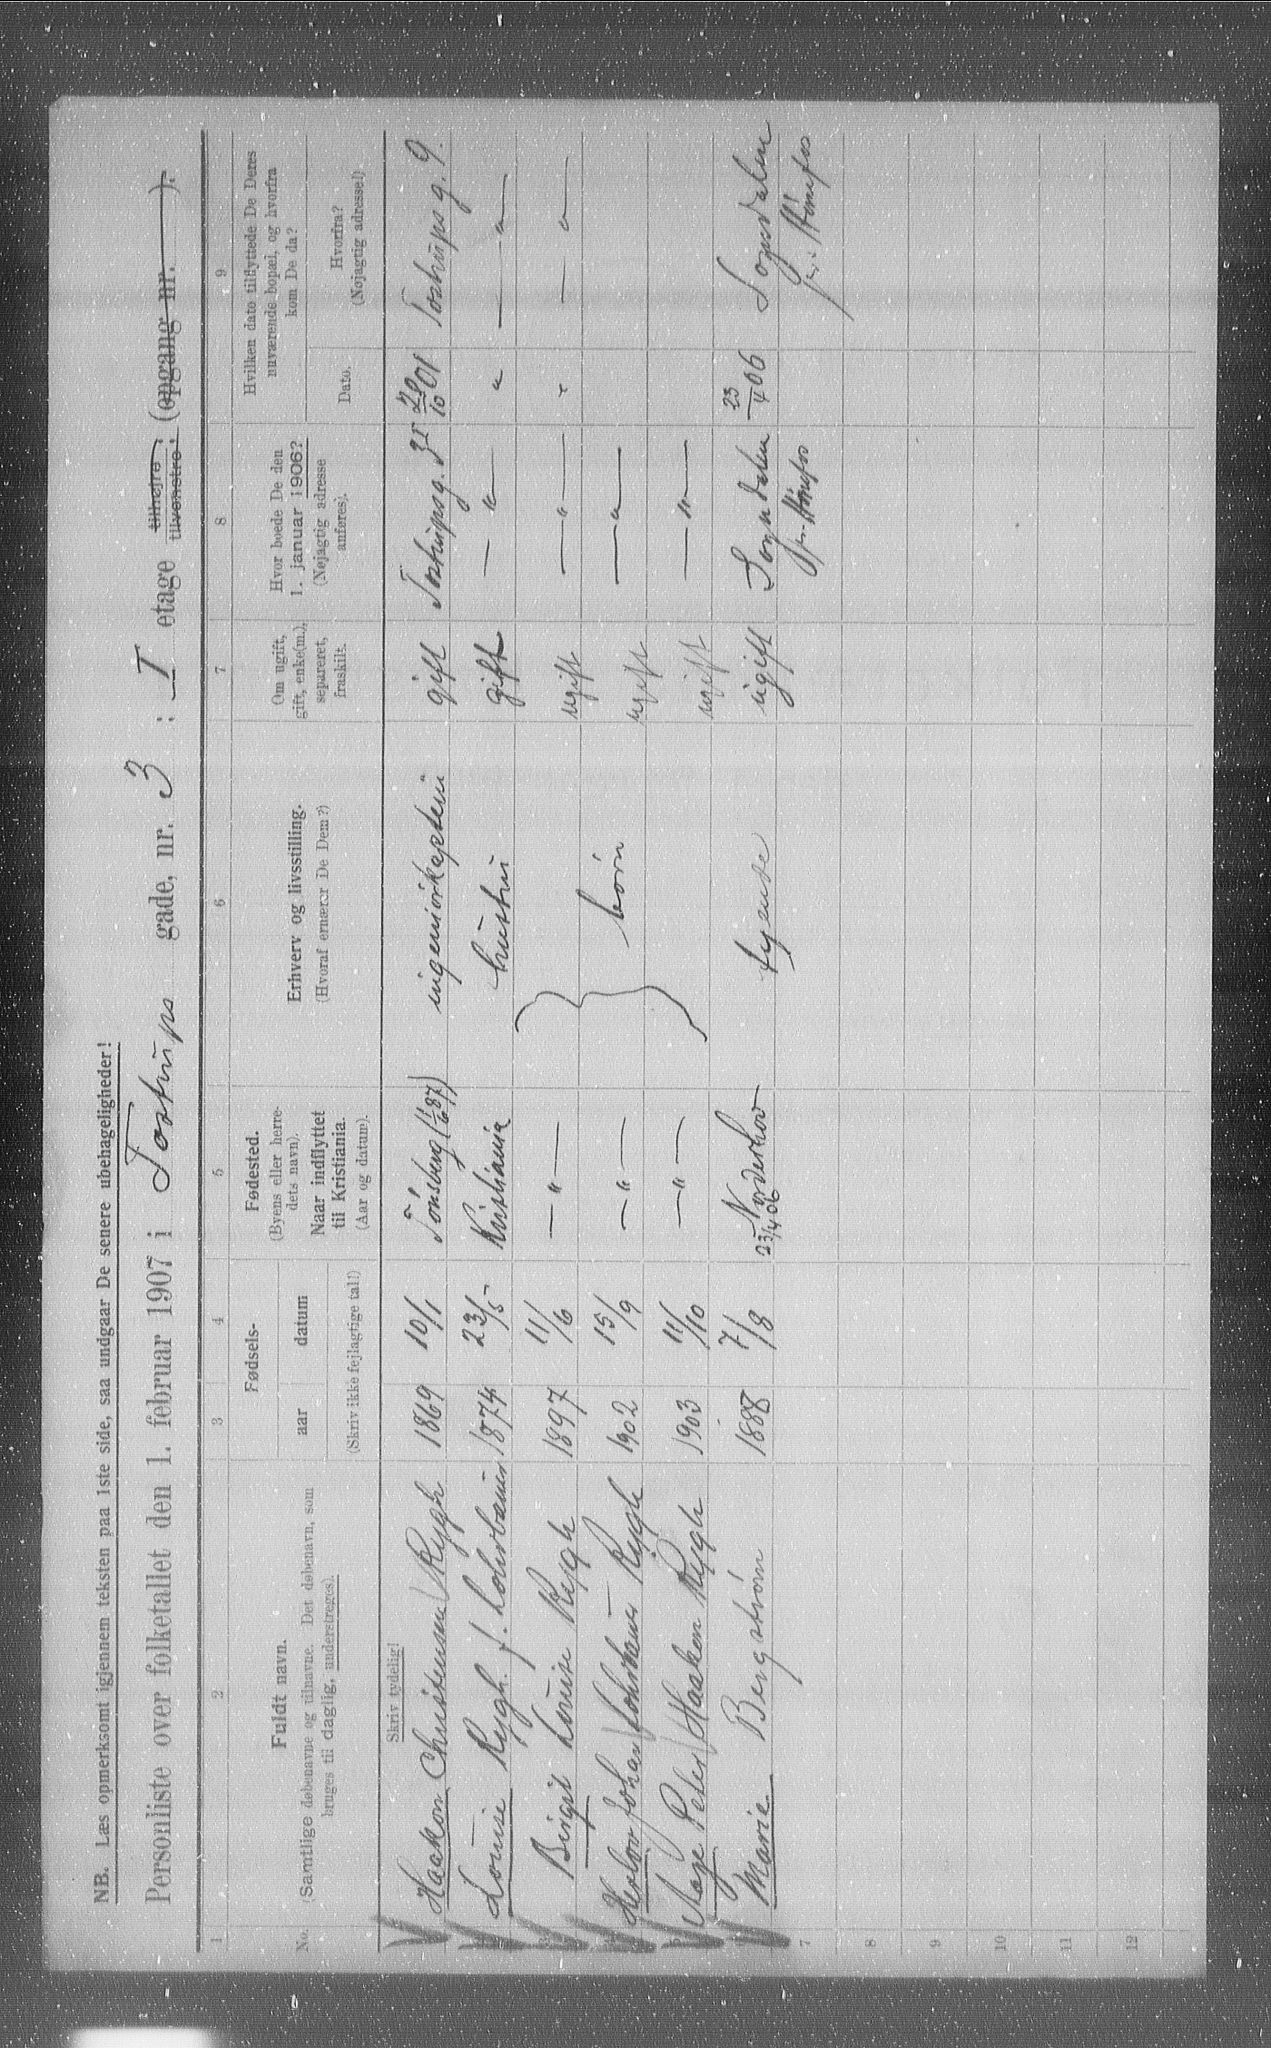 NB. Læs opmerksomt igjennem teksten paa 1ste side, saa undgaar De senere ubehageligheder!
Personliste over folketallet den 1. februar 1907 i Tostrups gade, nr. 3 : I etage tilhøjre, tilvenstre, (opgang nr. ).
1 2 3 4 5 6 7 8 9
No.
Fuldt navn.
(Samtlige døbenavne og tilnavne. Det døbenavn, som bruges til daglig, understreges).
Fødsels-
aar datum
(Skriv ikke fejlagtige tal!)
Fødested.
(Byens eller herredets navn).
Naar indflyttet til Kristiania.
(Aar og datum).
Erhverv og livsstilling.
(Hvoraf ernærer De Dem?)
Om ugift, gift, enke(m.), separeret, fraskilt.
Hvor boede De den 1. januar 1906?
(Nøjagtig adresse anføres).
Hvilken dato tilflyttede De Deres nuværende bopæl, og hvorfra kom De da?
Dato. Hvorfra?
(Nøjagtig adresse!)
Skriv tydelig!
Haakon Christensen Rygh 1869 10/1 Tönsberg (1/6 87) ingeniørkaptein gift Tostrupsg. 3I 20/10 01 Tostrupsg. 9.
Louise Rygh f. 1874 23/5 Kristiania hustru gift — " — " — " —
3 Birgit Louise Rygh 1897 11/6 — " — ugift — " — " — " —
Johan Rygh 1902 15/9 — " — børn ugift — " —
Aage Peter Haakon Rygh 1903 11/10 — " — ugift — " —
Marie Bergström 1888 7/8 Norderhov 23/4 06 tyende ugift Sogndalen pr. Hönefos 23/4 06 Sogndalen pr. Hönefos
7
8
9
10
11
12